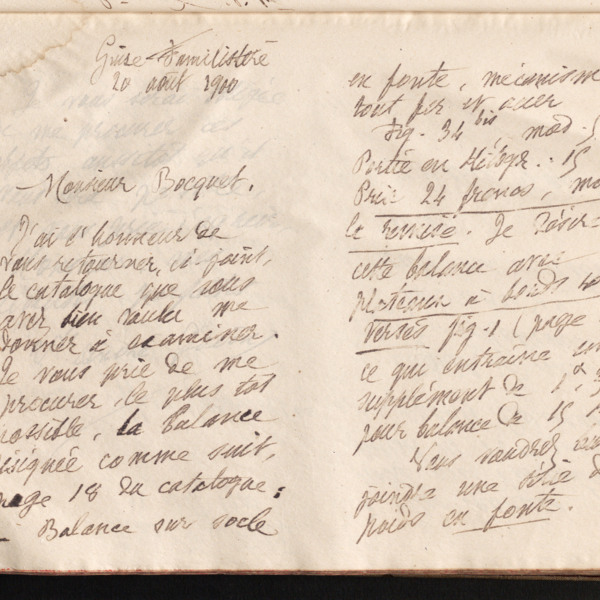 Guise-Familistère
20 août 1900
Monsieur Bocquet.
J'ai l'honneur de
vous retourner, ci joint,
le catalogue que vous
avez bien voulu me
donner à examiner.
Je vous prie de me
procurer, le plus tôt
possible, la balance
désignée comme suit,
page 18 du catalogue :
Balance sur socle
en fonte, mécanisme
tout fer et acier
Fig. 34 bis, mod. 5
Portée en kilogr. : 15
Prix 24 francs, mo
la remise. Je désir=
cette balance avec
plateaux à bords
versés fig. 1 (page
ce qui entraîne un
supplément de 1
pour balance de 15
Vous voudrez
joindre une série d
poids en fonte.